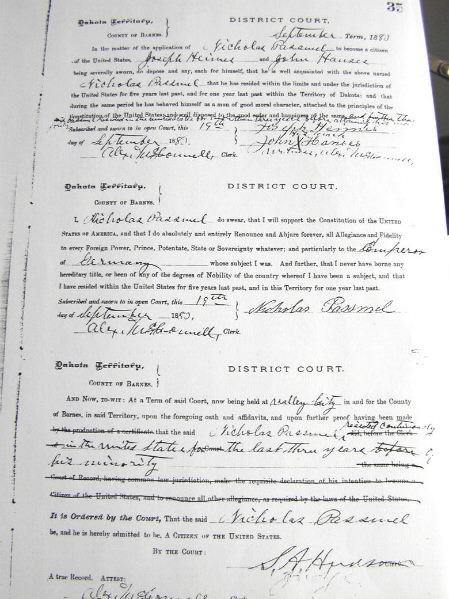 35
Dakota Territory,
COUNTY OF BARNES.
DISTRICT COURT,
September Term, 1883
In the matter of the application of Nicholas Passmel to become a citizen
of the United States, Joseph Heimes and John Hansen
being severally sworn, do depose and say, each for himself, that he is well acquainted with the above named
Nicholas Passmel that he has resided within the limits and under the jurisdiction of
the United States for five years last past, and for one year last past within the Territory of Dakota; and that
during the same period he has behaved himself as a man of good moral character, attached to the principles of the
Constitution of the United States and well disposed to the good order and happiness of the same
Subscribed and sworn to in open Court, this 19th
day of September 1883.
Alex McConnell, Clerk
Dakota Territory,
COUNTY OF BARNES.
DISTRICT COURT.
I, Nicholas Passmel do swear, that I will support the Constitution of the UNITED
STATES OF AMERICA, and that I do absolutely and entirely Renounce and Abjure forever, all Allegiance and Fidelity
to every Foreign Power, Prince, Potentate, State or Sovereignty whatever; and particularly to the Emperor
of Germany whose subject I was. And further, that I never have borne any
hereditary title, or been of any of the degrees of Nobility of the country whereof I have been a subject, and that
I have resided within the United States for five years last past, and in this Territory for one year last past.
Subscribed and sworn to in open Court, this 19th
day of September 1883.
Nicholas Passmel
Alex McConnell, Clerk.
Dakota Territory,
COUNTY OF BARNES.
DISTRICT COURT.
AND NOW, TO-WIT: At a Term of said Court, now being held at Valley City in and for the County
of Barnes, in said Territory, upon the foregoing oath and affidavits, and upon further proof having been made
by the production of a certificate that the said Nicholas Passmel resided continuously
in the United States for the last three years of
his minority
the same being a
Court of Record, having common law jurisdiction, make the requisite declarations of his intention to become a
Citizen of the United States, and to renounce all other allegiance, as required by the laws of the United States.
It is Ordered by the Court, That the said Nicholas Passmel
be, and he is hereby admitted to be, A CITIZEN OF THE UNITED STATES.
BY THE COURT:
S. A. Hudson
A true Record. ATTEST: